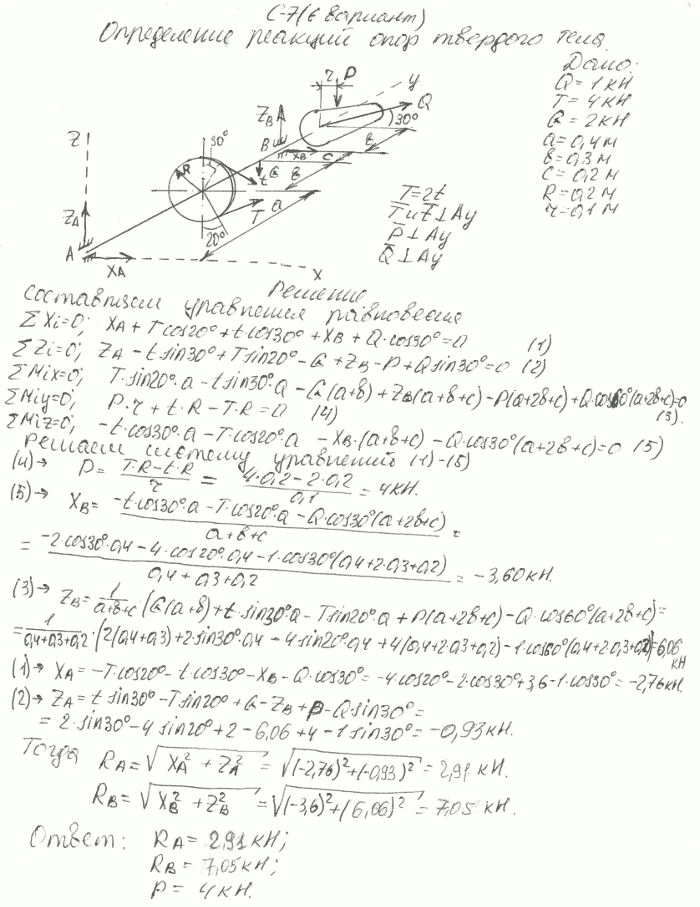 С-7(6 вариант)
Определение реакций опор твердого тела.
Дано:
Q = 1 кН
T = 4 кН
G = 2кН
a = 0,4 м
b = 0,3 м
c = 0,2 м
R = 0,2 м
r = 0,1 м
T = 2t
T и t ⊥ Ay
P ⊥ Ay
Q ⊥ Ay
r P
y
Q
30°
Z_B
B
X_B c b
Z
30°
R
t G b
T a
20°
Z_A
A
X_A
x
Решение
Составляем уравнения равновесия
ΣXi=0; X_A + T cos20° + t·cos30° + X_B + Q·cos30° = 0 (1)
ΣZi=0; Z_A - t·sin30° + T sin20° - G + Z_B - P + Q sin30° = 0 (2)
ΣMix=0; T·sin20°·a - t sin30°·a - G(a+b) + Z_B(a+b+c) - P(a+2b+c) + Q·cos60°(a+2b+c)=0 (3).
ΣMiy=0; P·r + t·R - T·R = 0 (4)
ΣMiz=0; -t·cos30°·a - T·cos20°·a - X_B·(a+b+c) - Q·cos30°(a+2b+c)=0 (5)
Решаем систему уравнений (1)-(5)
(4)→ P = (T·R - t·R)/r = (4·0,2 - 2·0,2)/0,1 = 4кН.
(5)→ X_B = (-t·cos30°·a - T·cos20°·a - Q·cos30°(a+2b+c))/(a+b+c) =
= (-2·cos30°·0,4 - 4·cos20°·0,4 - 1·cos30°(0,4+2·0,3+0,2))/(0,4+0,3+0,2) = -3,60 кН.
(3)→ Z_B = 1/(a+b+c) (G(a+b) + t·sin30°·a - T sin20°·a + P(a+2b+c) - Q·cos60°(a+2b+c)) =
= 1/(0,4+0,3+0,2) · (2(0,4+0,3) + 2·sin30°·0,4 - 4 sin20°·0,4 + 4(0,4+2·0,3+0,2) - 1·cos60°(0,4+2·0,3+0,2)) = 6,06 кН
(1)→ X_A = -T·cos20° - t·cos30° - X_B - Q·cos30° = -4·cos20° - 2·cos30° + 3,6 - 1·cos30° = -2,76 кН.
(2)→ Z_A = t sin30° - T sin20° + G - Z_B + P - Q sin30° =
= 2·sin30° - 4 sin20° + 2 - 6,06 + 4 - 1 sin30° = -0,93 кН.
Тогда R_A = √(X_A² + Z_A²) = √((-2,76)² + (-0,93)²) = 2,91 кН.
R_B = √(X_B² + Z_B²) = √((-3,6)² + (6,06)²) = 7,05 кН.
Ответ: R_A = 2,91 кН;
R_B = 7,05 кН;
P = 4 кН.